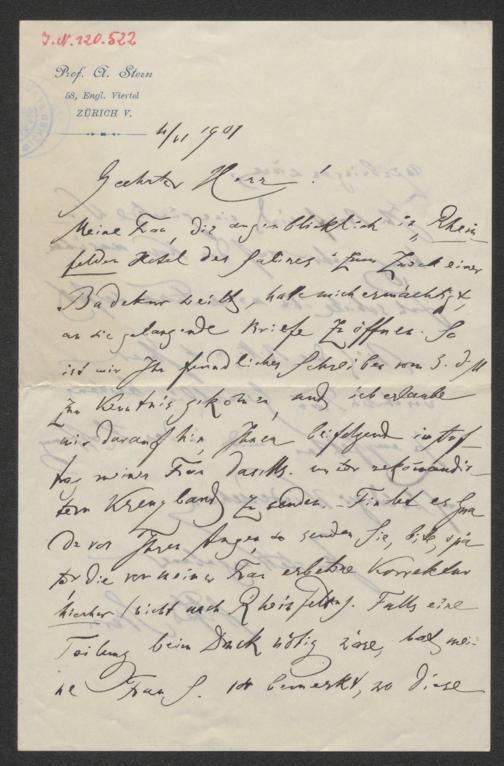 J.N. 120.522
Prof. A. Stern
58, Engl. Viertel
ZÜRICH V.
1901
Geehrter Herr!
Meine Frau, die augenblicklich in Rhein
felden Hotel des Salines zum Zweck einer
Badekur weilt, hat mich ermächtigt,
an sie gelangende Briefe zu öffnen. So
ist mir Ihr freundliches Schreiben vom 3. d. M
zur Kenntnis gekommen, und ich erlaube
mir daraufhin, Ihnen beifolgend im Auf
trag meiner Frau unter rekomandir
tem Kreuzband zu senden. Findet es Gna
de vor Ihren Augen, so senden Sie, bitte, spä
ter die von meiner Frau erbetene Korrektur
hierher (nicht nach Rheinfelden). Falls eine
Teilung beim Druck nötig wäre, hat mei-
ne Frau S. 10 bemerkt, wo diese